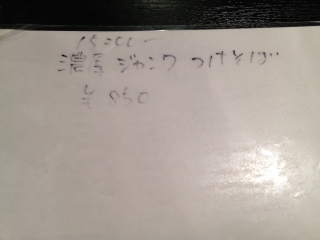 15:00〜
濃厚 ジャンク つけそば
¥850